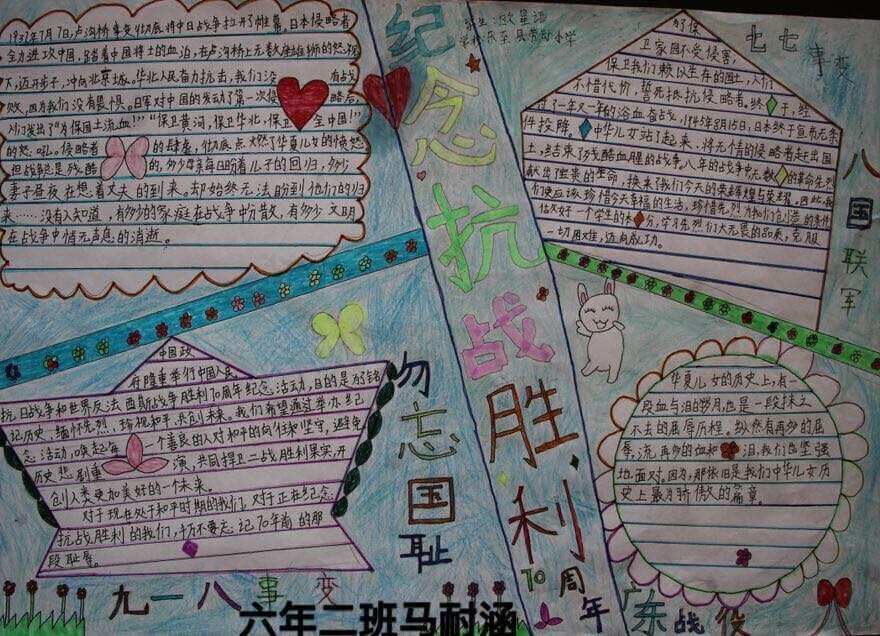 1937年7月7日,卢沟桥事变彻底将中日战争拉开了帷幕。日本侵略者
全力进攻中国,踏着中国将士的血泊,在卢沟桥上无数座雄狮的怒视
下,迈开步子,冲向北京城。华北人民奋力抗击,我们没有战
败,因为我们没有畏惧。日军对中国的发动了第一次侵略后,
人们发出了“为保国土流血!”“保卫黄河,保卫华北,保卫全中国!”
的怒吼。侵略者的肆虐,彻底点燃了华夏儿女的愤怒
但战争总是残酷的,多少母亲每日盼着儿子的回归,多少
妻子昼夜在想着丈夫的到来。却始终无法盼到他们的归
来……没有人知道,有多少的家庭在战争中拆散,有多少文明
在战争中悄无声息的消逝。
纪念抗战胜利
70周年
学生:欧星语
学校:乐至县劳动小学
为保
卫家园不受侵害,
保卫我们赖以生存的国土,人们
不惜代价,誓死抵抗侵略者。终于,经
过了一年又一年的浴血奋战,1945年8月15日,日本终于宣布无条
件投降。中华儿女站了起来,将无情的侵略者赶出国
土,结束了残酷血腥的战争。八年的战争中无数的革命先烈
献出了宝贵的生命,换来了我们今天的荣辉煌与荣耀,因此,我
们更应该珍惜今天幸福的生活,珍惜先烈为我们创造的条件
做好一个学生的本分,学习先烈们大无畏的品质,克服
一切困难,迈向成功。
七七事变
八国联军
中国政
府隆重举行中国人民
抗日战争和世界反法西斯战争胜利70周年纪念活动,目的是为铭
记历史、缅怀先烈、珍视和平、共创未来。我们希望通过举办纪
念活动,唤起每一个善良的人对和平的向往和坚守,避免
历史悲剧重演,共同捍卫二战胜利果实,开
创人类更加美好的一个未来。
对于现在处于和平时期的我们,对于正在纪念
抗战胜利的我们,千万不要忘记70年前的那
段耻辱。
勿忘国耻
华夏儿女的历史上,有一
段血与泪的岁月,也是一段抹之
不去的屈辱历程,纵然有再多的屈
辱,流再多的血和泪,我们也坚强
地面对。因为,那依旧是我们中华儿女历
史上最为骄傲的篇章。
九一八事变
广东战役
六年二班马耐涵